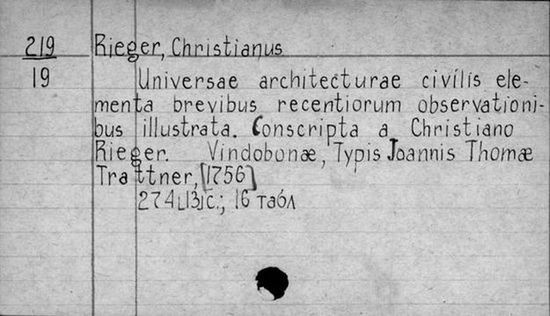 219 Rieger, Christianus
19 Universae architecturae civilis ele-
menta brevibus recentiorum observationi-
bus illustrata. Conscripta a Christiano
Rieger. Vindobonæ, Typis Joannis Thomæ
Trattner, [1756]
274 [13] c.; 16 табл